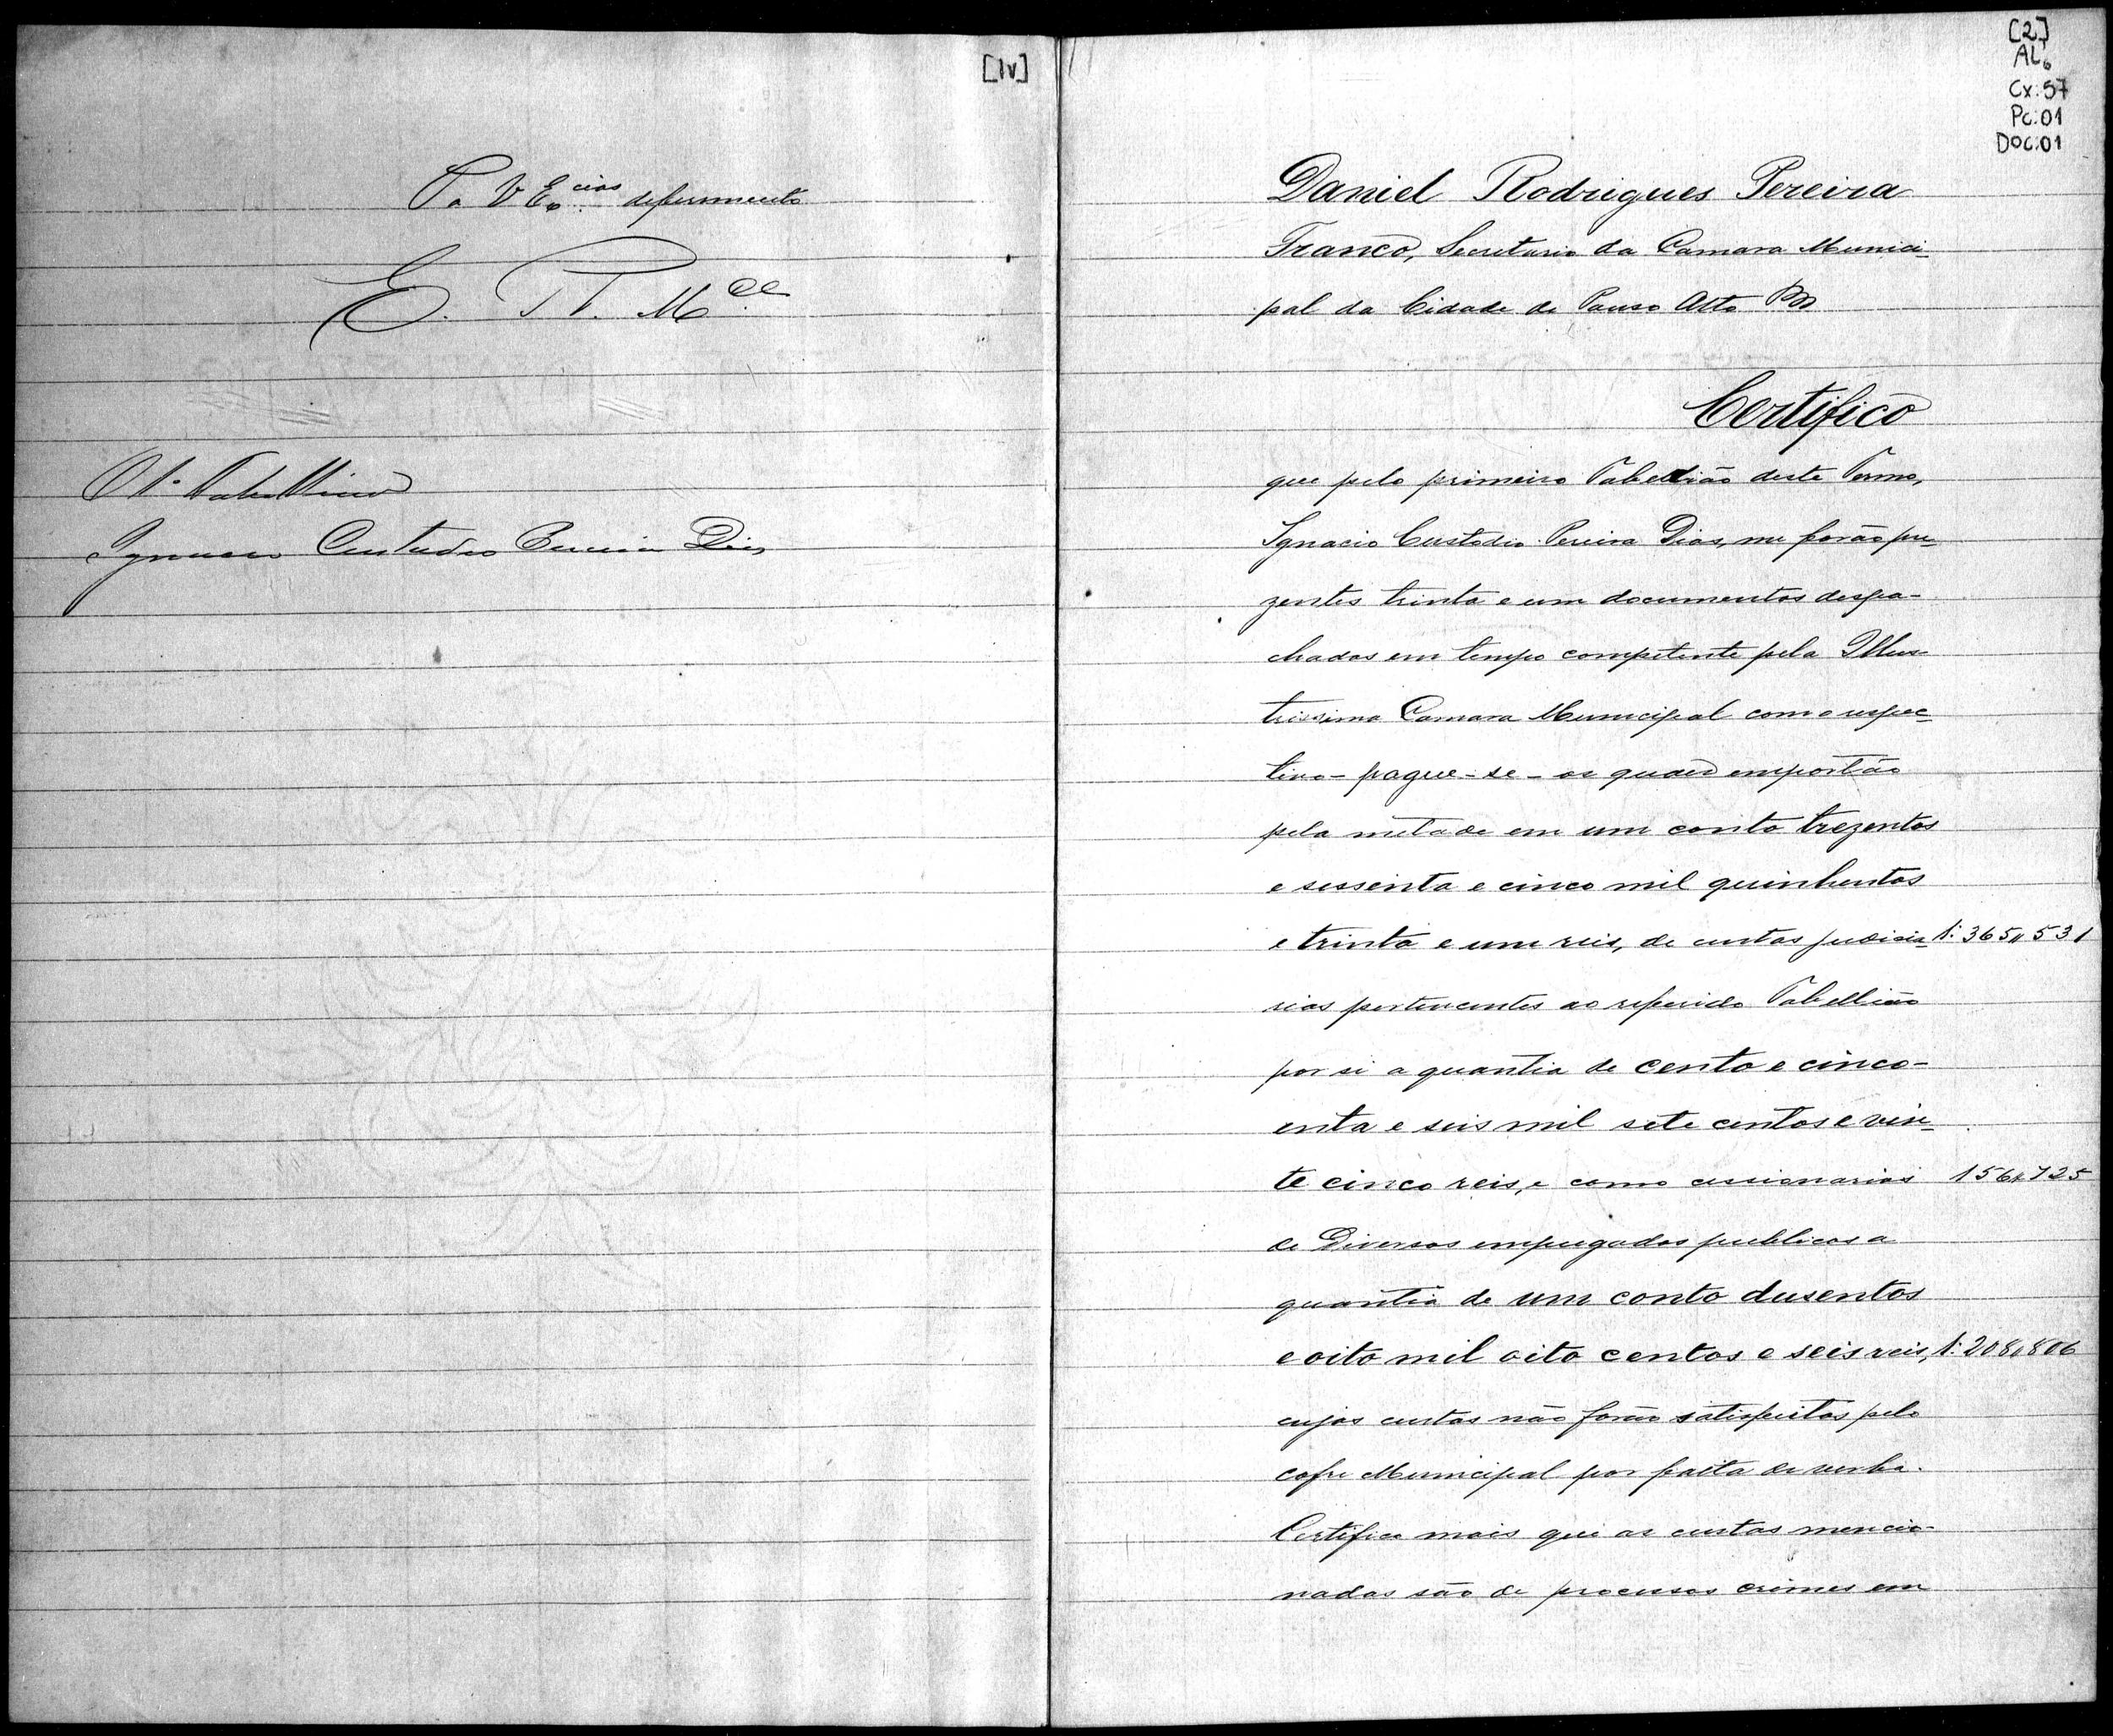 [1v]
P. a V Ex.cias deferimento
E. R. M.ce
O 1º Tabellião
Ignacio Custodio Pereira Dias
[2]
AL6
Cx: 57
Pc: 01
Doc: 01
Daniel Rodrigues Pereira
Franco, Secretario da Camara Munici-
pal da Cidade de Pouso Alto
Certifico
que pelo primeiro Tabellião deste Termo,
Ignacio Custodio Pereira Dias, me forão pre-
zentes trinta e um documentos despa-
chados em tempo competente pela Illus-
trissima Camara Municipal com o respec-
tivo - pague-se - os quaes emportão
pela metade em um conto trezentos
e sessenta e cinco mil quinhentos
e trinta e um reis, de custas judicia- 1:365"531
rias pertencentes ao referido Tabellião
por si a quantia de cento e cinco-
enta e seis mil sete centos e vin-
te cinco reis, e como cessionarios 156"725
de Diversos empregados publicos a
quantia de um conto dusentos
e oito mil oito centos e seis reis, 1:208"806
cujas custas não forão satisfeitas pelo
cofre Municipal por falta de verba.
Certifico mais que as custas mencio-
nadas são de processos crimes em